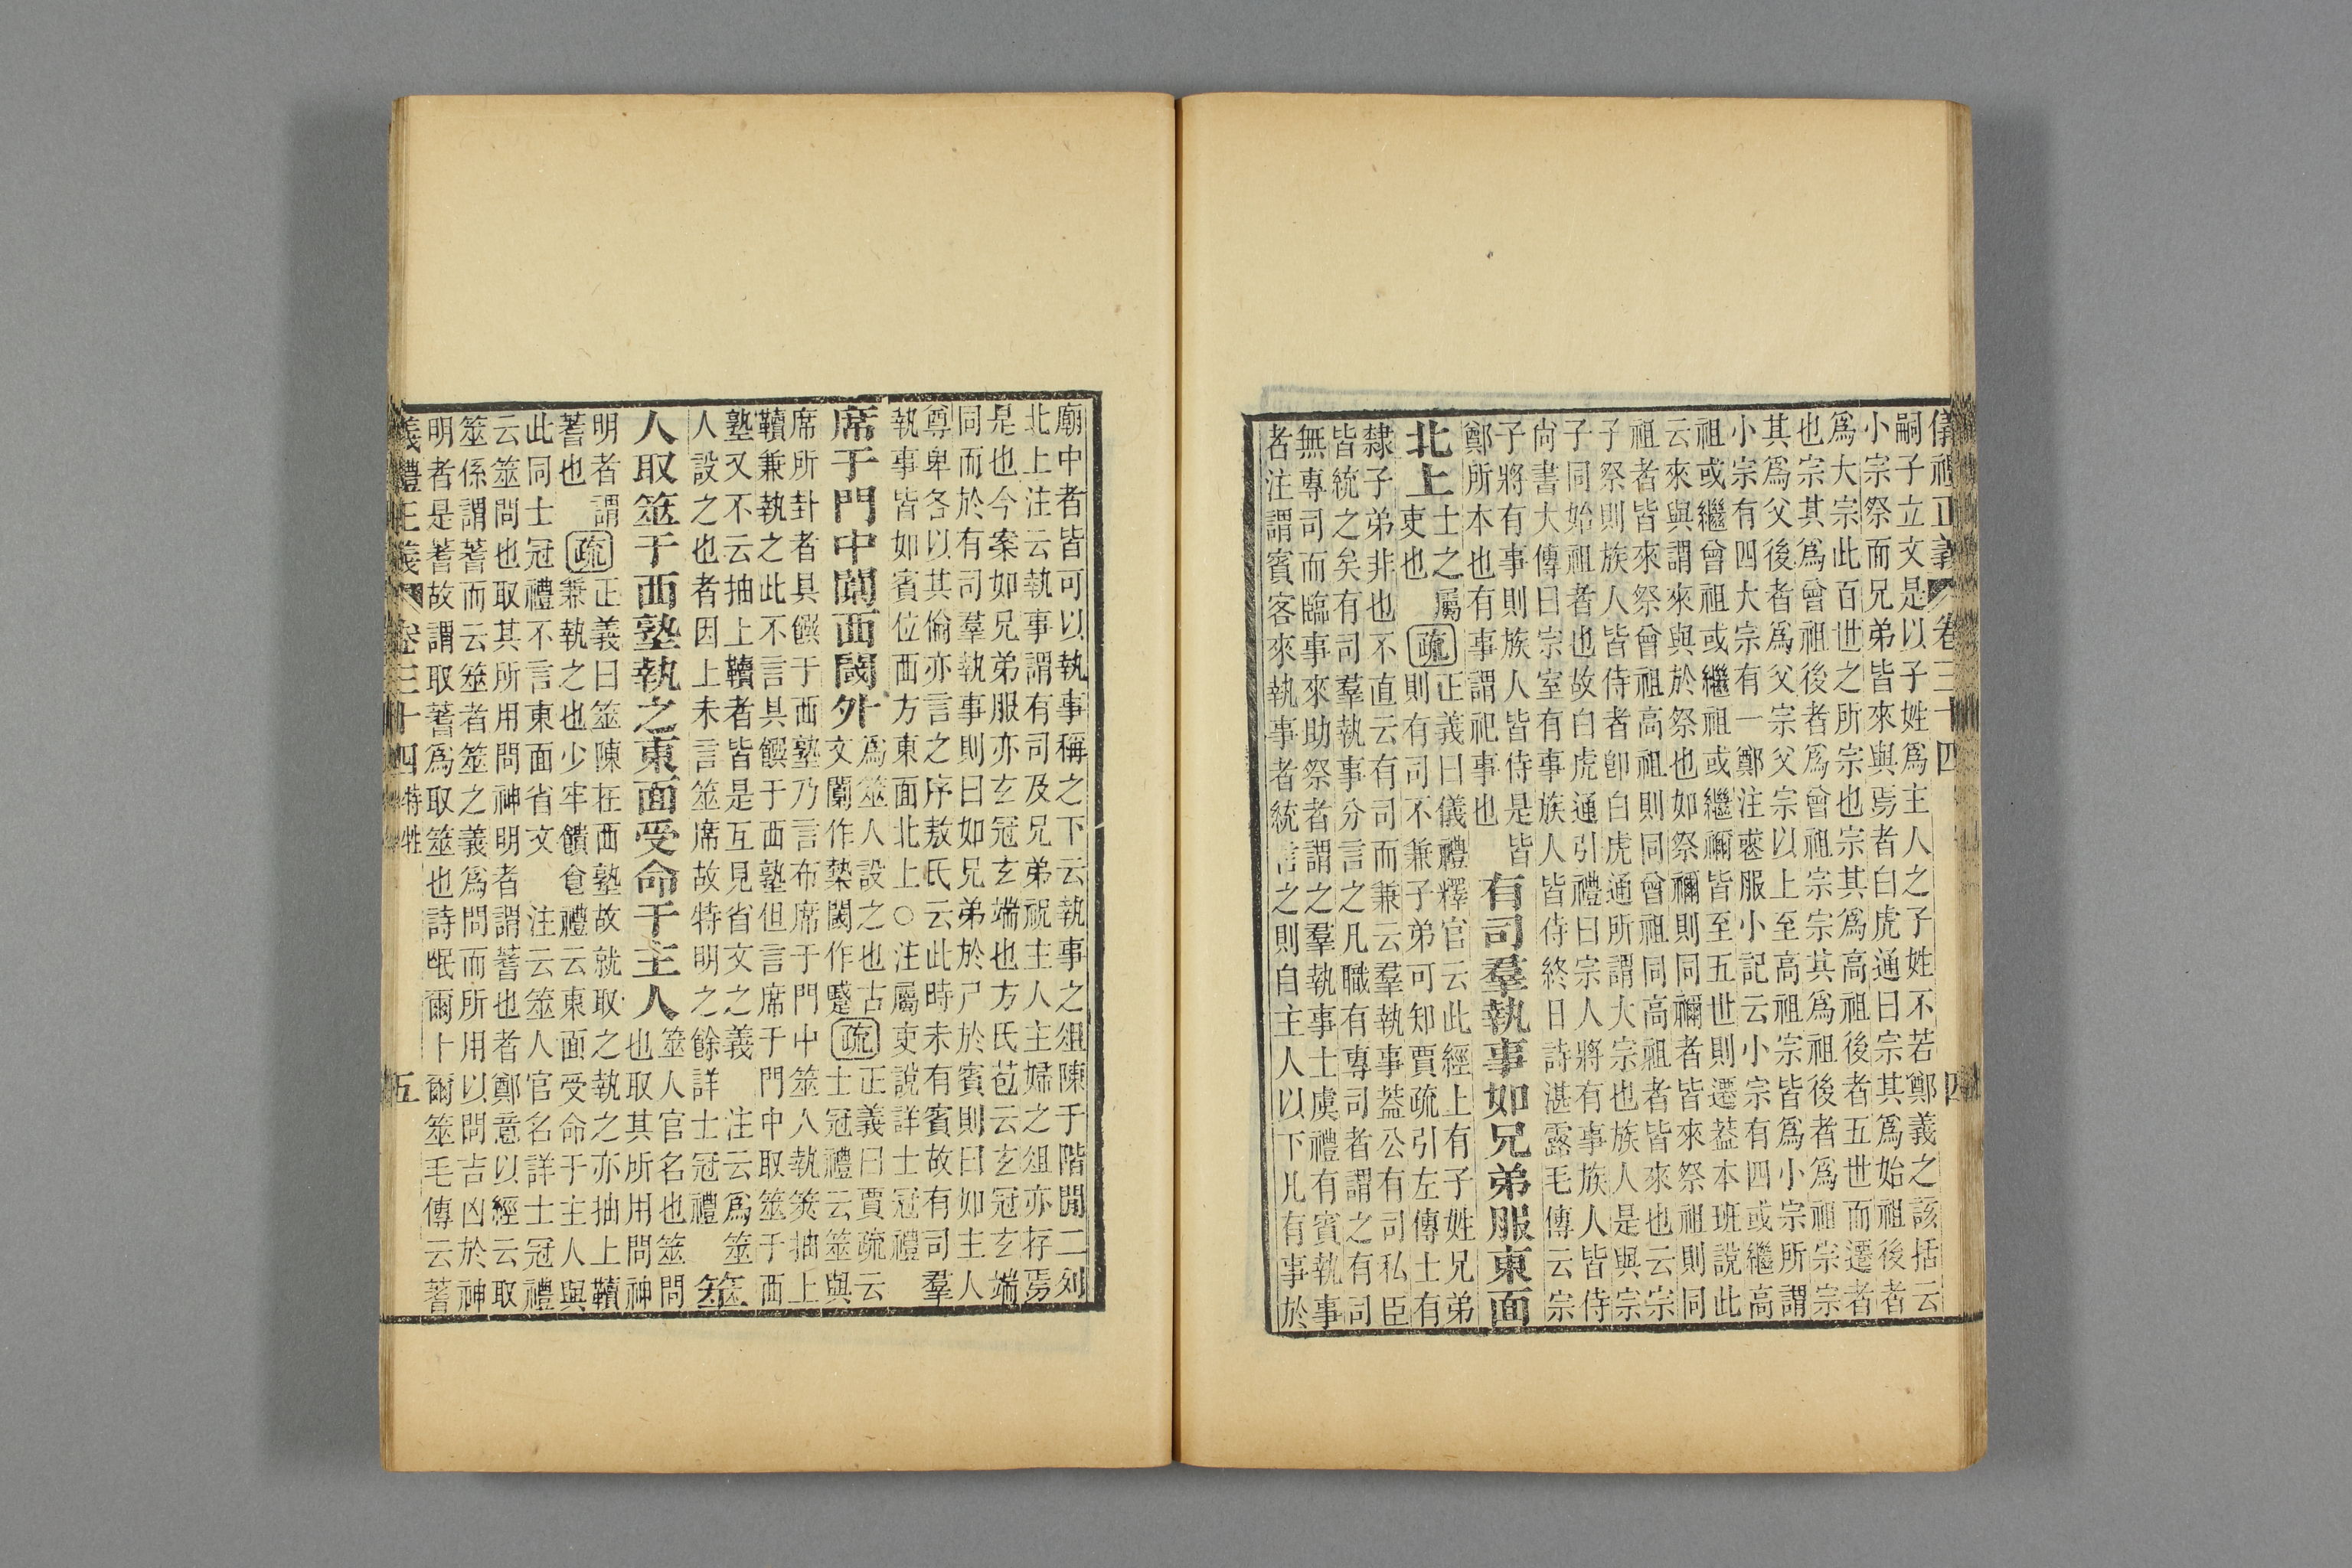 儀禮正義 卷三十四 四
嗣子立文是以子姓爲主人之子姓不若鄭義之該括云
小宗祭而兄弟皆來與焉者白虎通曰宗其爲始祖後者
爲大宗此百世之所宗也宗其爲高祖後者五世而遷者
也宗其爲曾祖後者爲曾祖宗宗其爲祖後者爲祖宗宗
其爲父後者爲父宗父宗以上至高祖宗皆爲小宗所謂
小宗有四大宗有一鄭注喪服小記云小宗有四或繼高
祖或繼曾祖或繼祖或繼禰皆至五世則遷蓋本班說此
云來與謂來與於祭也如祭禰則同禰者皆來祭祖則同
祖者皆來祭曾祖高祖則同曾祖同高祖者皆來也云宗
子祭則族人皆侍者卽白虎通所謂大宗也族人是與宗
子同始祖者也故白虎通引禮曰宗人將有事族人皆侍
尙書大傳曰宗室有事族人皆侍終日詩湛露毛傳云宗
子將有事則族人皆侍是皆
鄭所本也有事謂祀事也
有司羣執事如兄弟服東面
北上
士之屬
吏也
疏
正義曰儀禮釋官云此經上有子姓兄弟
則有司不兼子弟可知賈疏引左傳士有
隸子弟非也不直云有司而兼云羣執事蓋公有司私臣
皆統之矣有司羣執事分言之凡職有專司者謂之有司
無專司而臨事來助祭者謂之羣執事士虞禮有賓執事
者注謂賓客來執事者統言之則自主人以下凡有事於
廟中者皆可以執事稱之下云執事之俎陳于階閒二列
北上注云執事謂有司及兄弟祝主人主婦之俎亦存焉
是也今案如兄弟服亦玄冠玄端也方氏苞云玄冠玄端
同而於有司羣執事則曰如兄弟於尸於賓則曰如主人
尊卑各以其倫亦言之序敖氏云此時未有賓故有司羣
執事皆如賓位西方東面北上○注屬吏說詳士冠禮
席于門中闑西閾外
爲筮人設之也古
文闑作槷閾作蹙
疏
正義曰賈疏云
士冠禮云筮與
席所卦者具饌于西塾乃言布席于門中筮人執筴抽上
韇兼執之此不言具饌于西塾但言席于門中取筮于西
塾又不云抽上韇者皆是互見省文之義 注云爲筮
人設之也者因上未言筮席故特明之餘詳士冠禮
筮
人取筮于西塾執之東面受命于主人
筮人官名也筮問
也取其所用問神
明者謂
蓍也
疏
正義曰筮陳在西塾故就取之執之亦抽上韇
兼執之也少牢饋食禮云東面受命于主人與
此同士冠禮不言東面省文 注云筮人官名詳士冠禮
云筮問也取其所用問神明者謂蓍也者鄭意以經云取
筮係謂蓍而云筮者筮之義爲問而所用以問吉凶於神
明者是蓍故謂取蓍爲取筮也詩氓爾卜爾筮毛傳云蓍
義禮正義 卷三十四 特牲 五